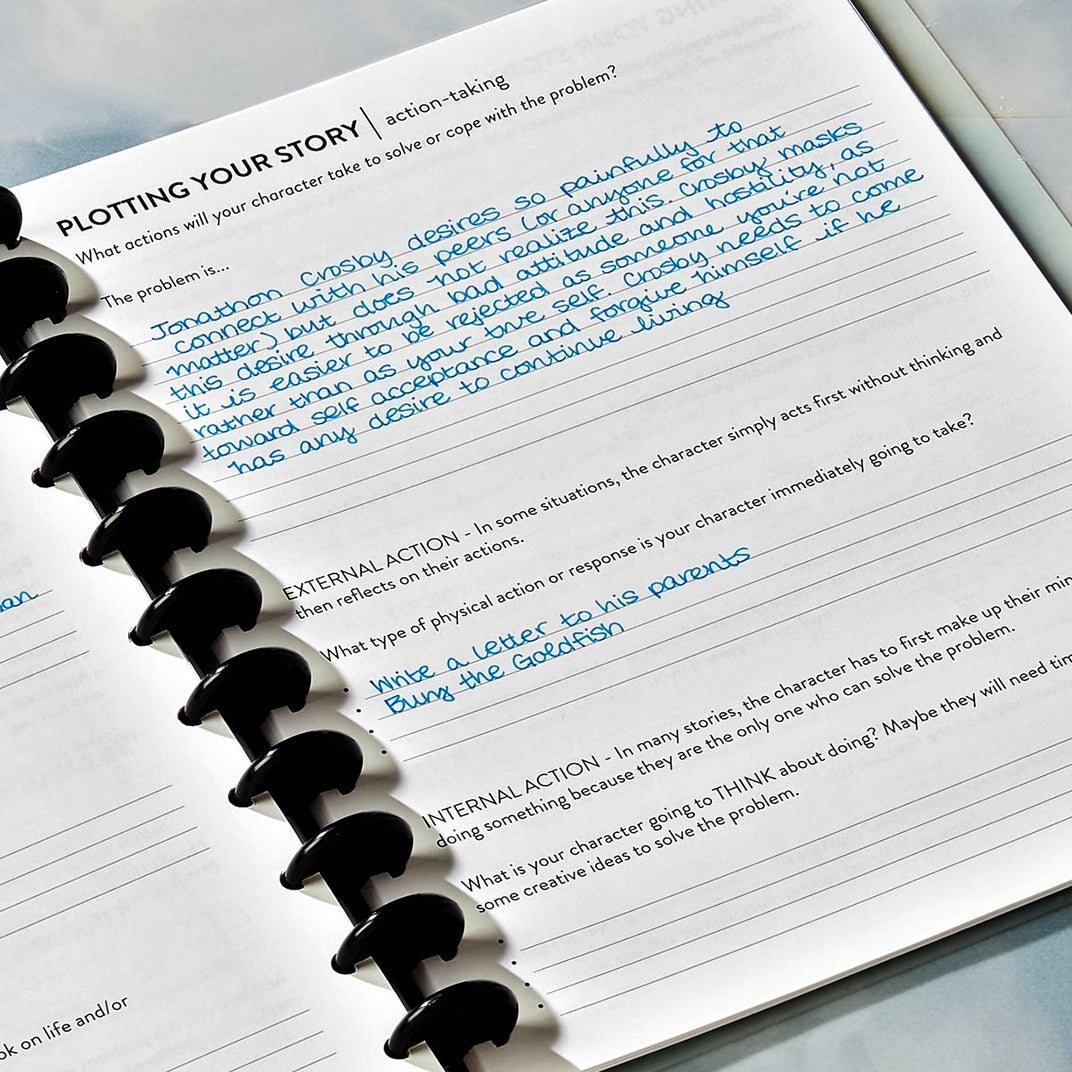 PLOTTING YOUR STORY | action-taking
What actions will your character take to solve or cope with the problem?
The problem is...
Jonathon Crosby desires so painfully to
connect with his peers (or anyone for that
matter) but does not realize this. Crosby masks
this desire through bad attitude and hostility, as
it is easier to be rejected as someone you're not
rather than as your true self. Crosby needs to come
toward self acceptance and forgive himself if he
has any desire to continue living
EXTERNAL ACTION - In some situations, the character simply acts first without thinking and
then reflects on their actions.
What type of physical action or response is your character immediately going to take?
Write a letter to his parents
Bury the Goldfish
INTERNAL ACTION - In many stories, the character has to first make up their
doing something because they are the only one who can solve the problem.
What is your character going to THINK about doing? Maybe they will need
some creative ideas to solve the problem.
on life and/or